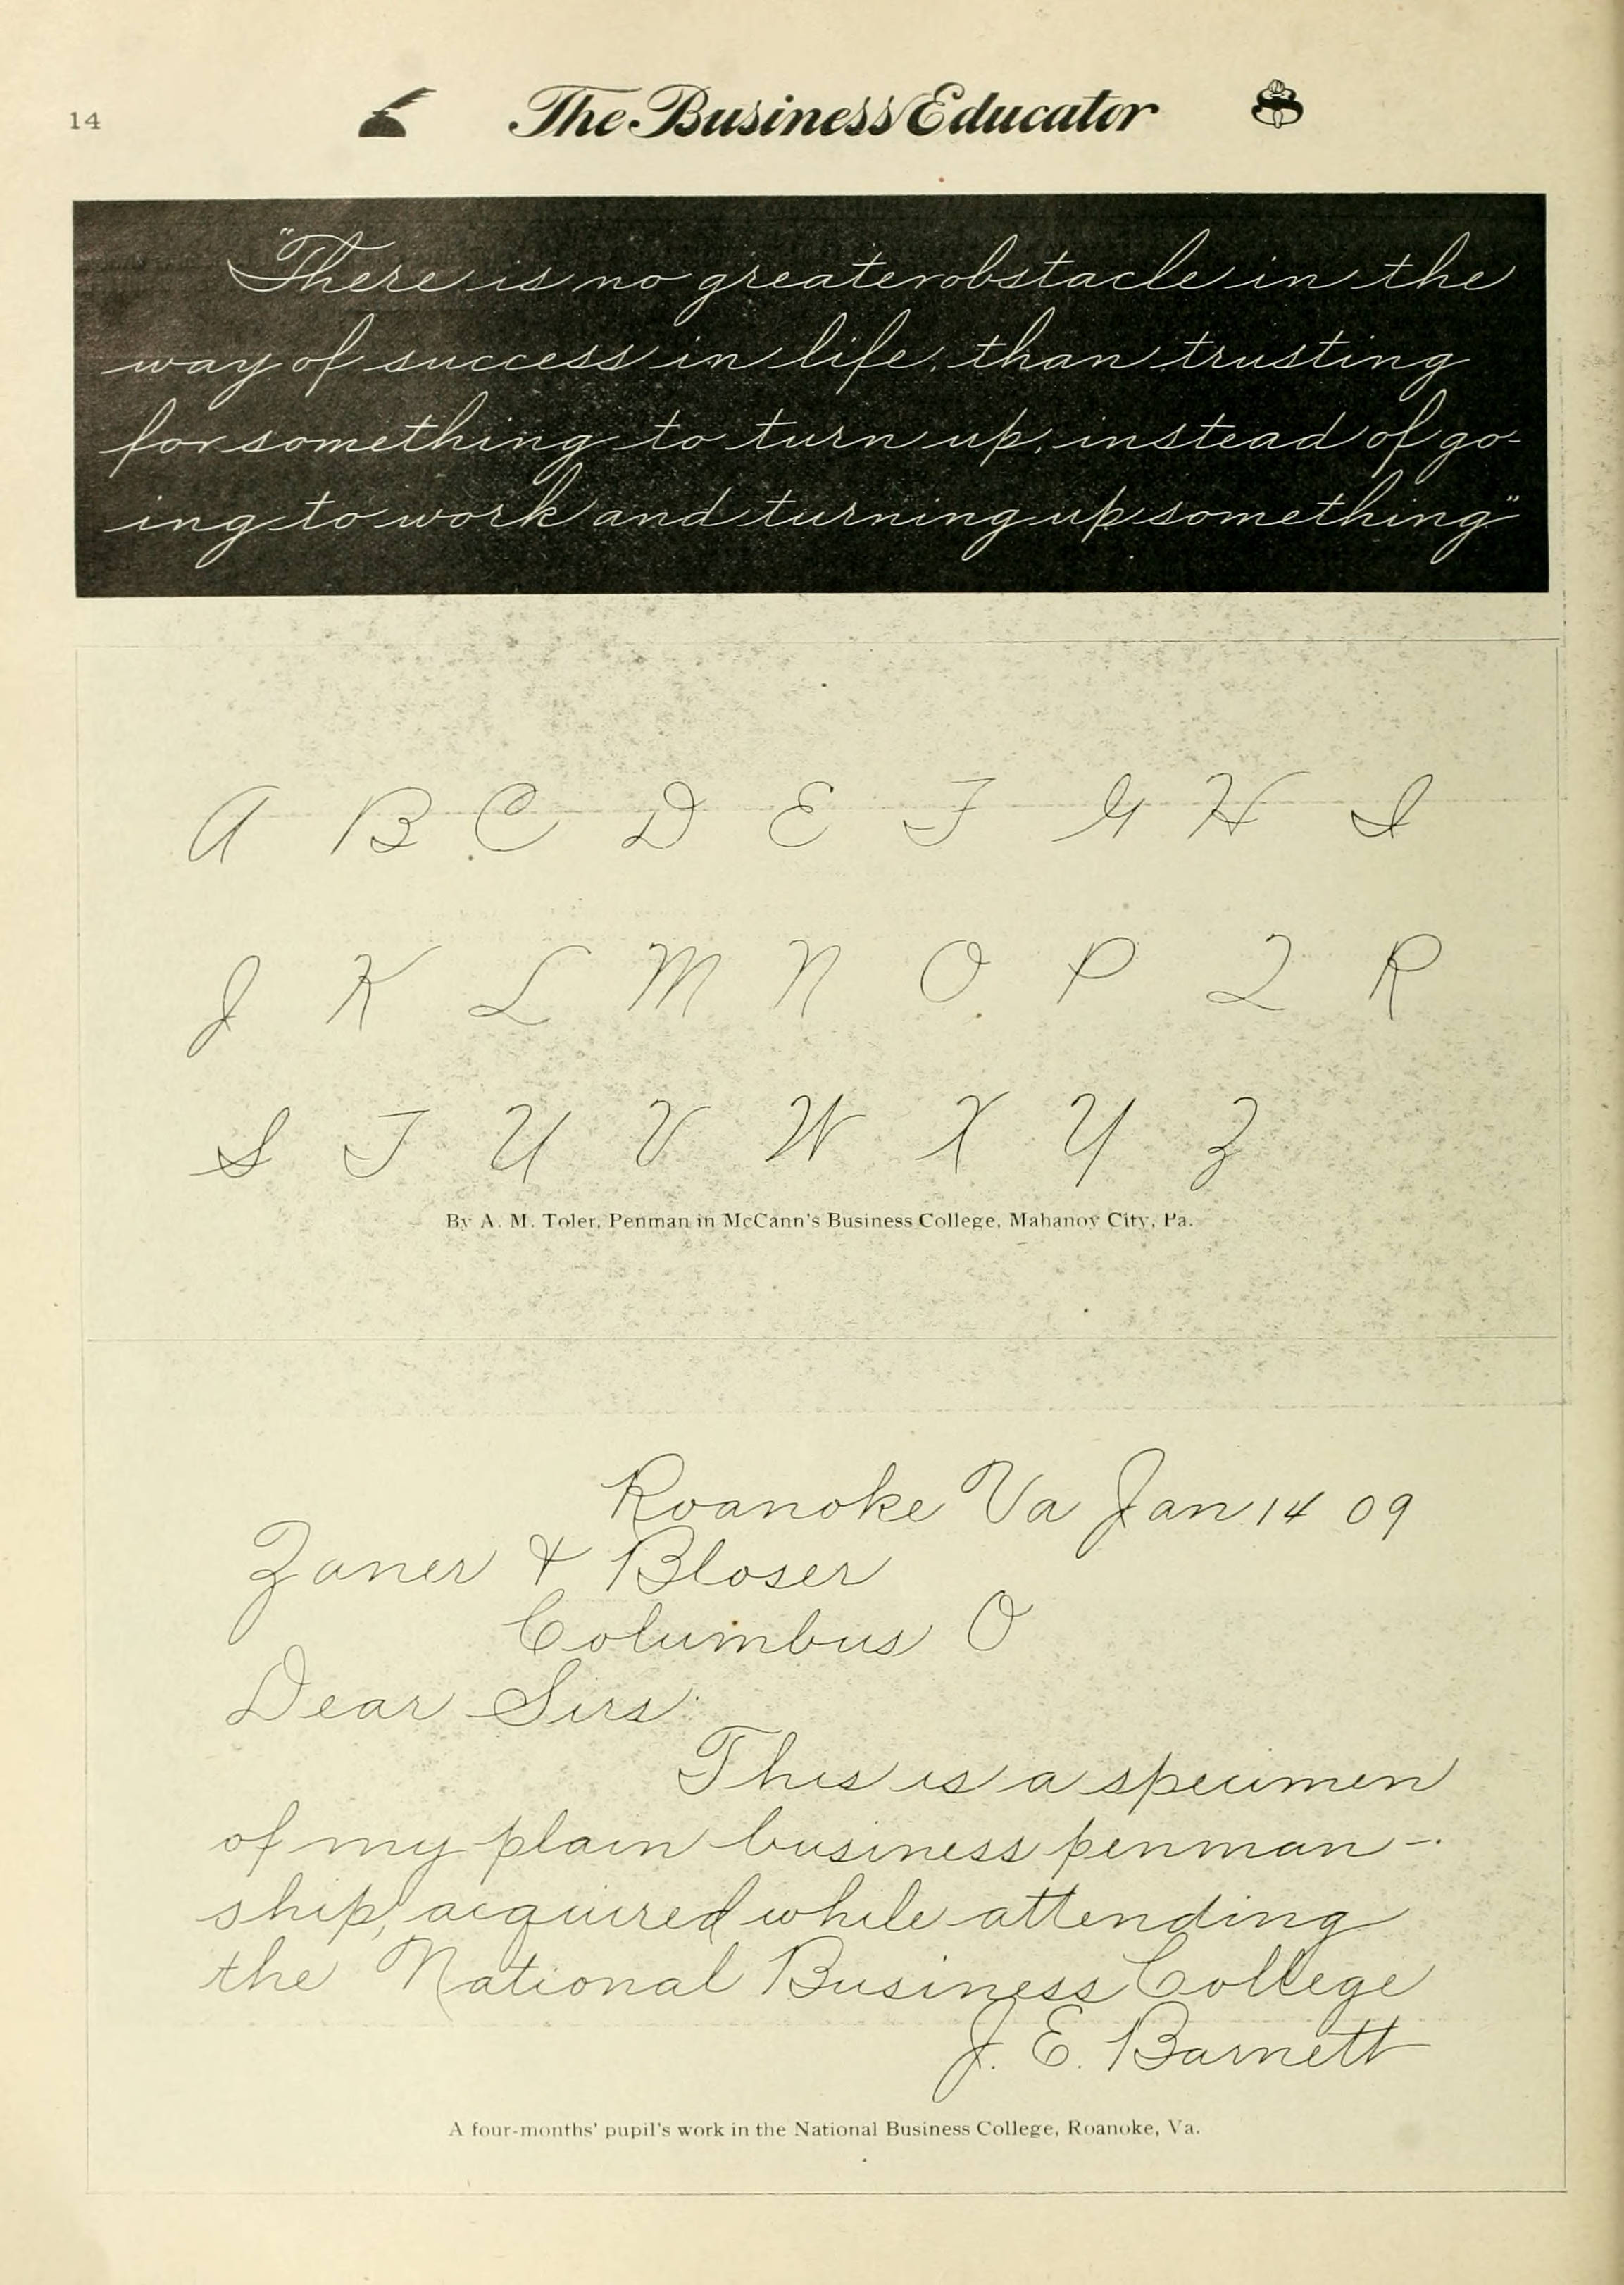 14
The Business Educator
"There is no greater obstacle in the
way of success in life, than trusting
for something to turn up, instead of go-
ing to work and turning up something"
A B C D E F G H I
J K L M N O P Q R
S T U V W X Y Z
By A. M. Toler, Penman in McCann's Business College, Mahanoy City, Pa.
Roanoke Va Jan. 14 09
Zaner & Bloser
Columbus O
Dear Sirs:
This is a specimen
of my plain business penman-
ship, acquired while attending
the National Business College
J. E. Barnett
A four-months' pupil's work in the National Business College, Roanoke, Va.